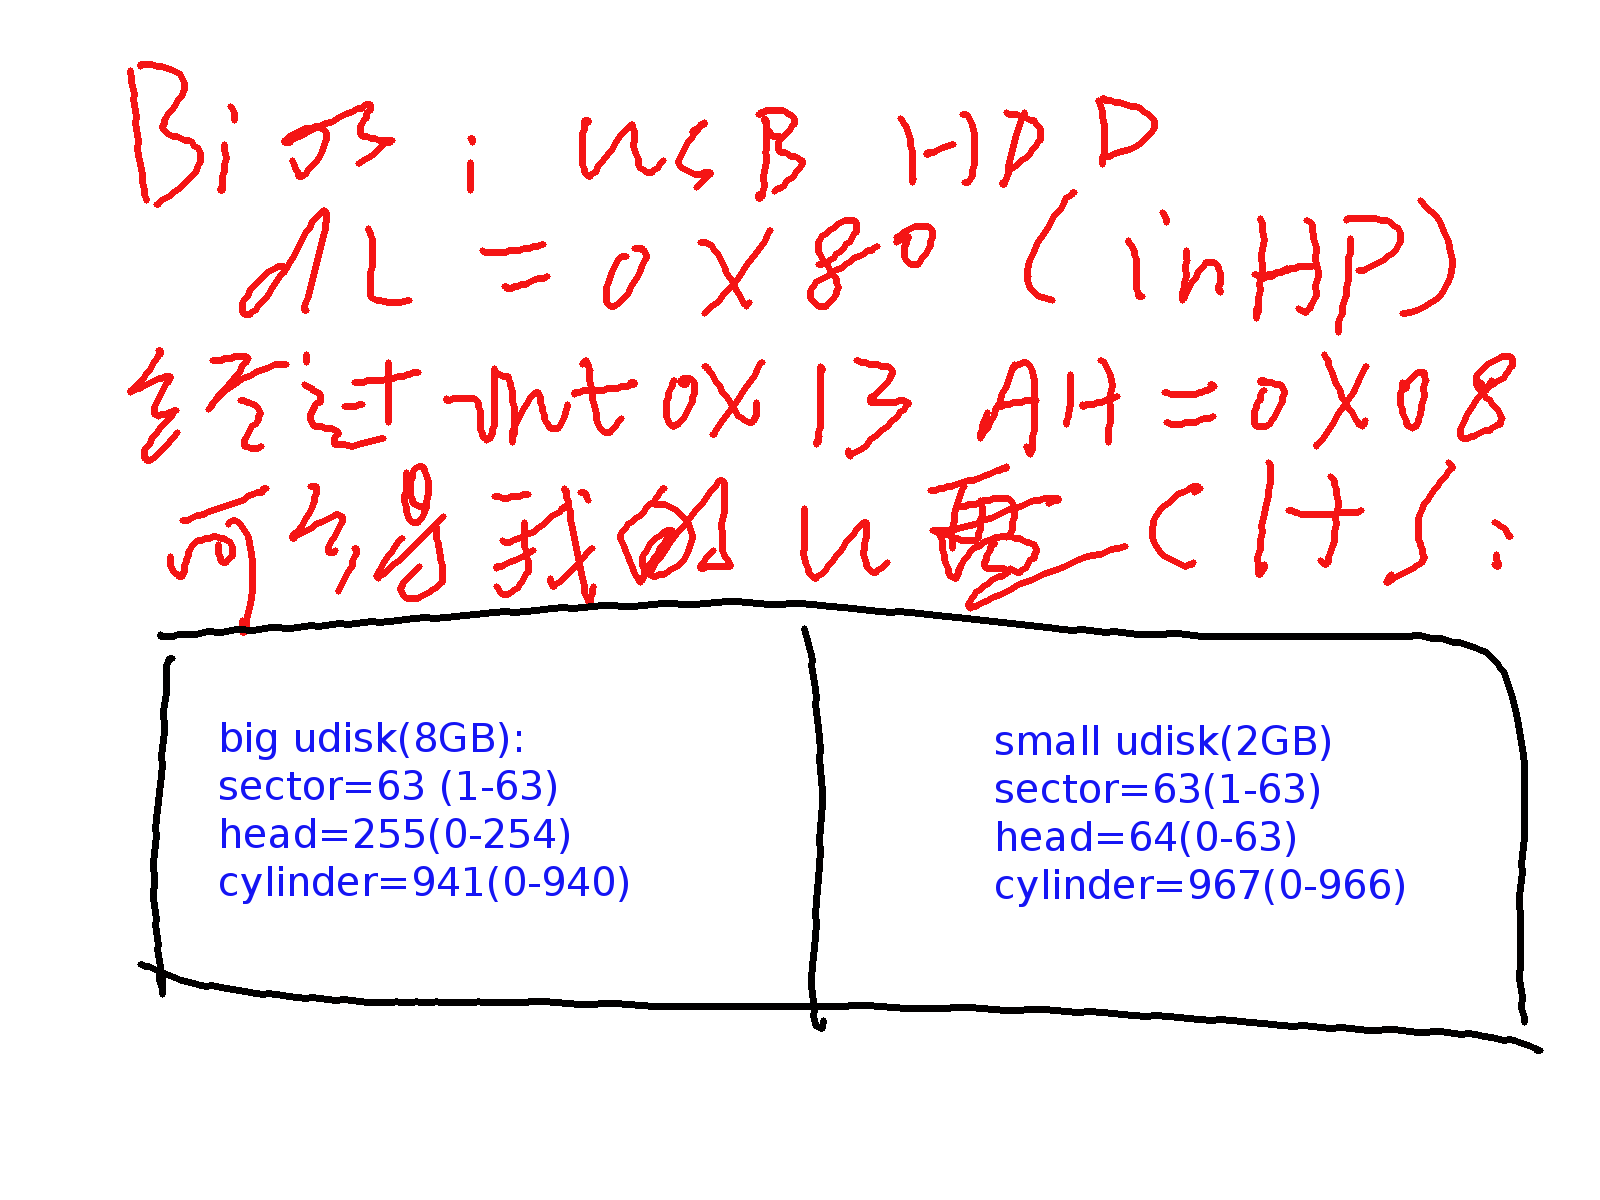 Bios: USB HDD
dL=0X80 (in HP)
经过int 0X13 AH=0X08
可得我的U盘CHS:
big udisk(8GB):
sector=63 (1-63)
head=255(0-254)
cylinder=941(0-940)
small udisk(2GB)
sector=63(1-63)
head=64(0-63)
cylinder=967(0-966)